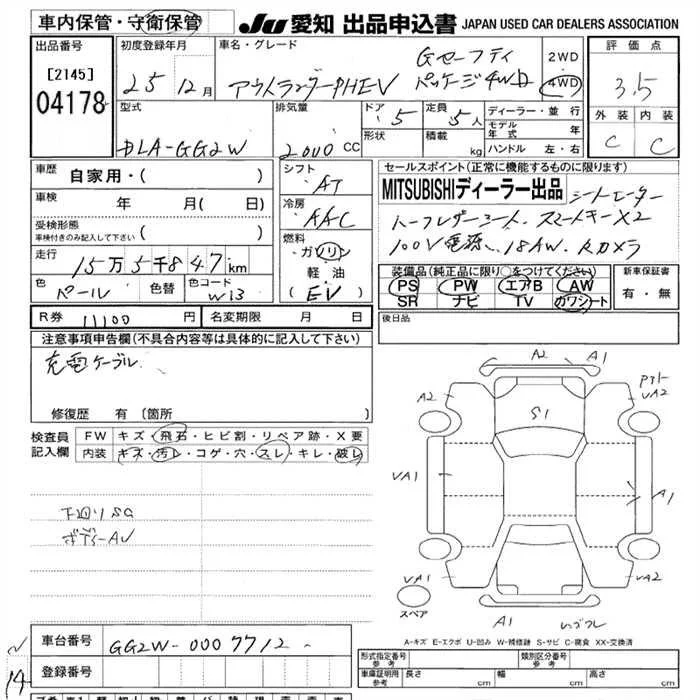 車内保管・守衛保管
JU 愛知 出品申込書 JAPAN USED CAR DEALERS ASSOCIATION
出品番号
[2145]
04178
初度登録年月
25 12月
車名・グレード
アウトランダーPHEV
Gセーフティ
パッケージ4WD
2WD
4WD
評価点
3.5
外装 内装
C C
型式
DLA-GG2W
排気量
2000 CC
ドア 5
形状
定員 5人
積載 kg
ディーラー・並行
モデル年式 年
ハンドル 左・右
車歴 自家用・( )
車検 年 月( 日)
受検形態
車検付きのみ記入して下さい ( )
走行 15万5千847km
色 パール 色替 色コード W13
シフト AT
冷房 AAC
燃料
ガソリン
軽油
(EV)
セールスポイント(正常に機能するものに限ります)
MITSUBISHIディーラー出品 シートヒーター
ハーフレザーシート.スマートキーX2
100V電源.18AW.Rカメラ
装備品(純正品に限り○をつけてください)
PS PW エアB AW
SR ナビ TV カワシート
新車保証書
有・無
R券 11100 円 名変期限 月 日
後日品
注意事項申告欄(不具合内容等は具体的に記入して下さい)
充電ケーブル
修復歴 有(箇所
検査員記入欄
FW キズ・飛石・ヒビ割・リペア跡・X要
内装 キズ・汚レ・コゲ・穴・スレ・キレ・破レ
下回りSC
ボディーAU
A2 A1
A2
VA2
S1
VA1
A1
VA1
VA2
A1
スペア
A-キズ E-エクボ U-凹み W-補修跡 S-サビ C-腐食 XX-交換済
車台番号 GG2W-0007712
登録番号
形式指定番号
参考
類別区分番号
参考
車庫証明用
参考
長さ cm 幅 cm 高さ cm
14